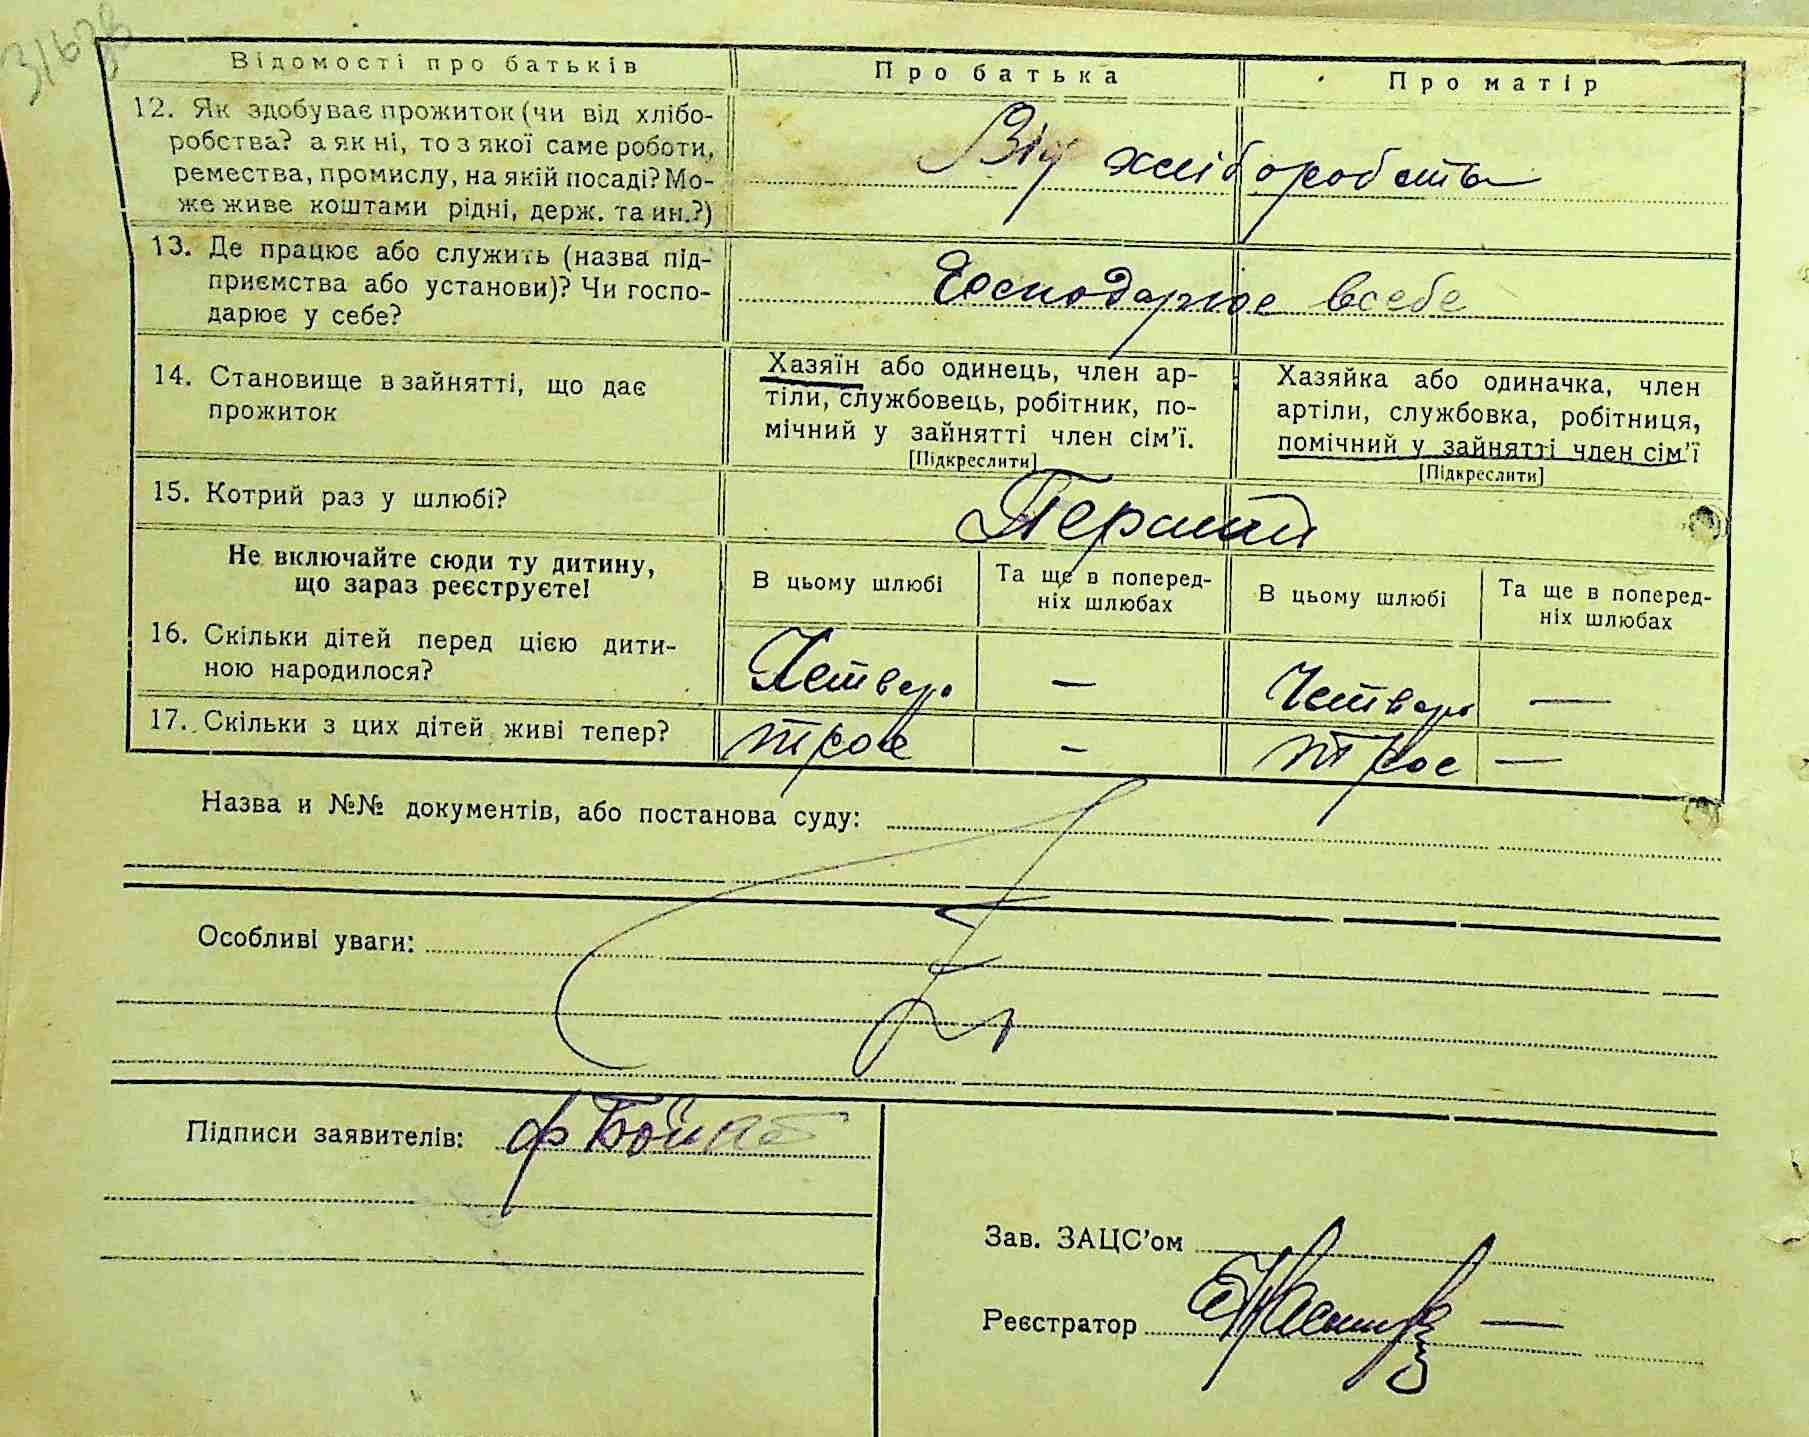 3162в
Відомості про батьків
Про батька
Про матір
12. Як здобуває прожиток (чи від хлібо-
робства? а як ні, то з якої саме роботи,
ремества, промислу, на якій посаді? Мо-
же живе коштами рідні, держ. та ин.?)
Від хліборобства
13. Де працює або служить (назва під-
приємства або установи)? Чи госпо-
дарює у себе?
Господарює всебе
14. Становище в зайнятті, що дає
прожиток
Хазяїн або одинець, член ар-
тіли, службовець, робітник, по-
мічний у зайнятті член сім'ї.
[Підкреслити]
Хазяйка або одиначка, член
артіли, службовка, робітниця,
помічний у зайнятті член сім'ї
[Підкреслити]
15. Котрий раз у шлюбі?
Перший
Не включайте сюди ту дитину,
що зараз реєструєте!
В цьому шлюбі
Та ще в поперед-
ніх шлюбах
В цьому шлюбі
Та ще в поперед-
ніх шлюбах
16. Скільки дітей перед цією дити-
ною народилося?
Четверо
—
Четверо
—
17. Скільки з цих дітей живі тепер?
трое
—
трое
—
Назва и №№ документів, або постанова суду:
Особливі уваги:
Підписи заявителів:
Зав. ЗАЦС'ом
Реєстратор